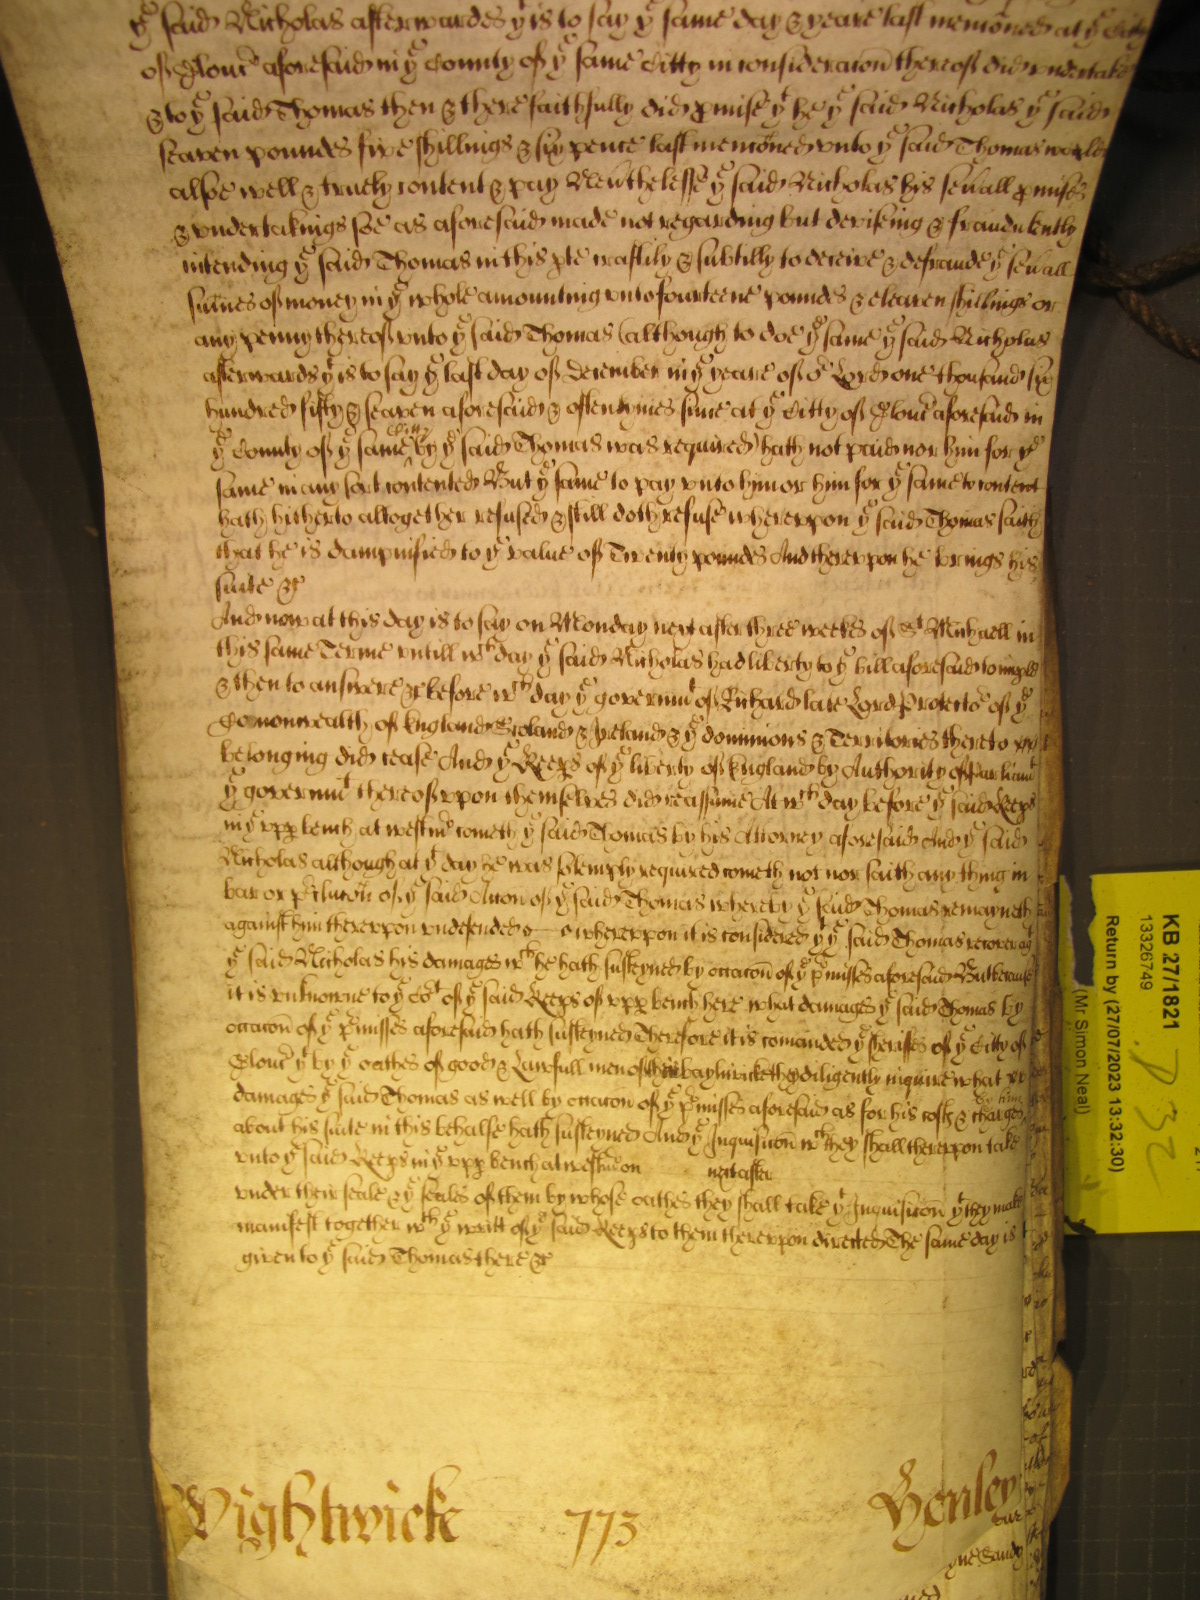 yᵉ said Nicholas afterwardes yᵗ is to say yᵉ same day & yeare last menc̄oned at yᵉ Citty
of Glouc̄ aforesaid in yᵉ County of yᵉ same Citty in considerac̄on thereof did undertake
& to yᵉ said Thomas then & there faithfully did p̱mise yᵗ he yᵉ said Nicholas yᵉ said
seaven poundes five shillings & six pence last menc̄oned vnto yᵉ said Thomas would
alsoe well & truely content & pay Nev̄thelesse yᵉ said Nicholas his sev̄all p̱mises
& vndertakings soe as aforesaid made not regarding but deviseing & fraudulently
intending yᵉ said Thomas in this p̱te craftily & subtilly to deceive & defraude yᵉ sev̄all
sum̄es of money in yᵉ whole amounting vnto fourteene poundes & eleaven shillings or
any penny thereof vnto yᵉ said Thomas (although to doe yᵉ same yᵉ said Nicholas
afterwards yᵗ is to say yᵉ last day of December in yᵉ yeare of oʳ Lord one thousand six
hundred fifty & seaven aforesaid & oftentymes since at yᵉ Citty of Glouc̄ aforesaid in
yᵉ County of yᵉ same Citty by yᵉ said Thomas was required) hath not paid nor him for yᵉ
same in any sort contented But yᵉ same to pay vnto him or him for yᵉ same to content
hath hitherto altogether refused & still doth refuse wherevpon yᵉ said Thomas saith
that he is dampnified to yᵉ value of Twenty poundes And therevpon he brings his
suite &c
And now at this day is to say on Monday next after three weekes of Sᵗ Michaell in
this same Terme vntill wᶜʰ day yᵉ said Nicholas had liberty to yᵉ bill aforesaid to imple
& then to answere &c before wᶜʰ day yᵉ governmᵗ of Richard late Lord Protectoʳ of yᵉ
Com̄onwealth of England Scotland & Ireland & yᵉ dominions & Territories thereto
belonging did cease And yᵉ Keep̱s of yᵉ liberty of England by Authority of Parliamᵗ
yᵉ governmᵗ thereof vpon themselves did reassume At wᶜʰ day before yᵉ said Keep̱s
in yᵉ vpp̱ bench at westmʳ cometh yᵉ said Thomas by his Attorney aforesaid And yᵉ said
Nicholas although at yᵗ day he was solemply required cometh not nor saith any thing in
bar or p̄clusion of yᵉ said Acc̄on of yᵉ said Thomas whereby yᵉ said Thomas remayneth
against him therevpon vndefended wherevpon it is considered yᵗ yᵉ said Thomas recover agᵗ
yᵉ said Nicholas his damages wᶜʰ he hath susteyned by occac̄on of yᵉ p̄misses aforesaid But because
it is vnknowne to yᵉ Coʳᵗ of yᵉ said Keep̱s of vpp̱ bench here what damages yᵉ said Thomas by
occac̄on of yᵉ p̄misses aforesaid hath susteyned Therefore it is com̄anded yᵉ sheriffes of yᵉ Citty of
Glouc̄ yᵗ by yᵉ oathes of good & Lawfull men of their bayliwicke they diligently inquire what
damages yᵉ said Thomas as well by occac̄on of yᵉ p̄misses aforesaid as for his costs & charges by him
about his suite in this behalfe hath susteyned And yᵉ Inquisic̄on wᶜʰ they shall therevpon take
vnto yᵉ said Keep̱s in yᵉ vpp̱ bench at westmʳ on next after
vnder their seale & yᵉ seales of them by whose oathes they shall take yᵗ Inquisic̄on yᵗ they make
manifest together wᵗʰ yᵉ writt of yᵉ said Keep̱s to them therevpon directed The same day is
given to yᵉ said Thomas there &c
Wightwicke 773 Henley
KB 27/1821
13326749
Return by (27/07/2023 13:32:30)
(Mr Simon Neal)